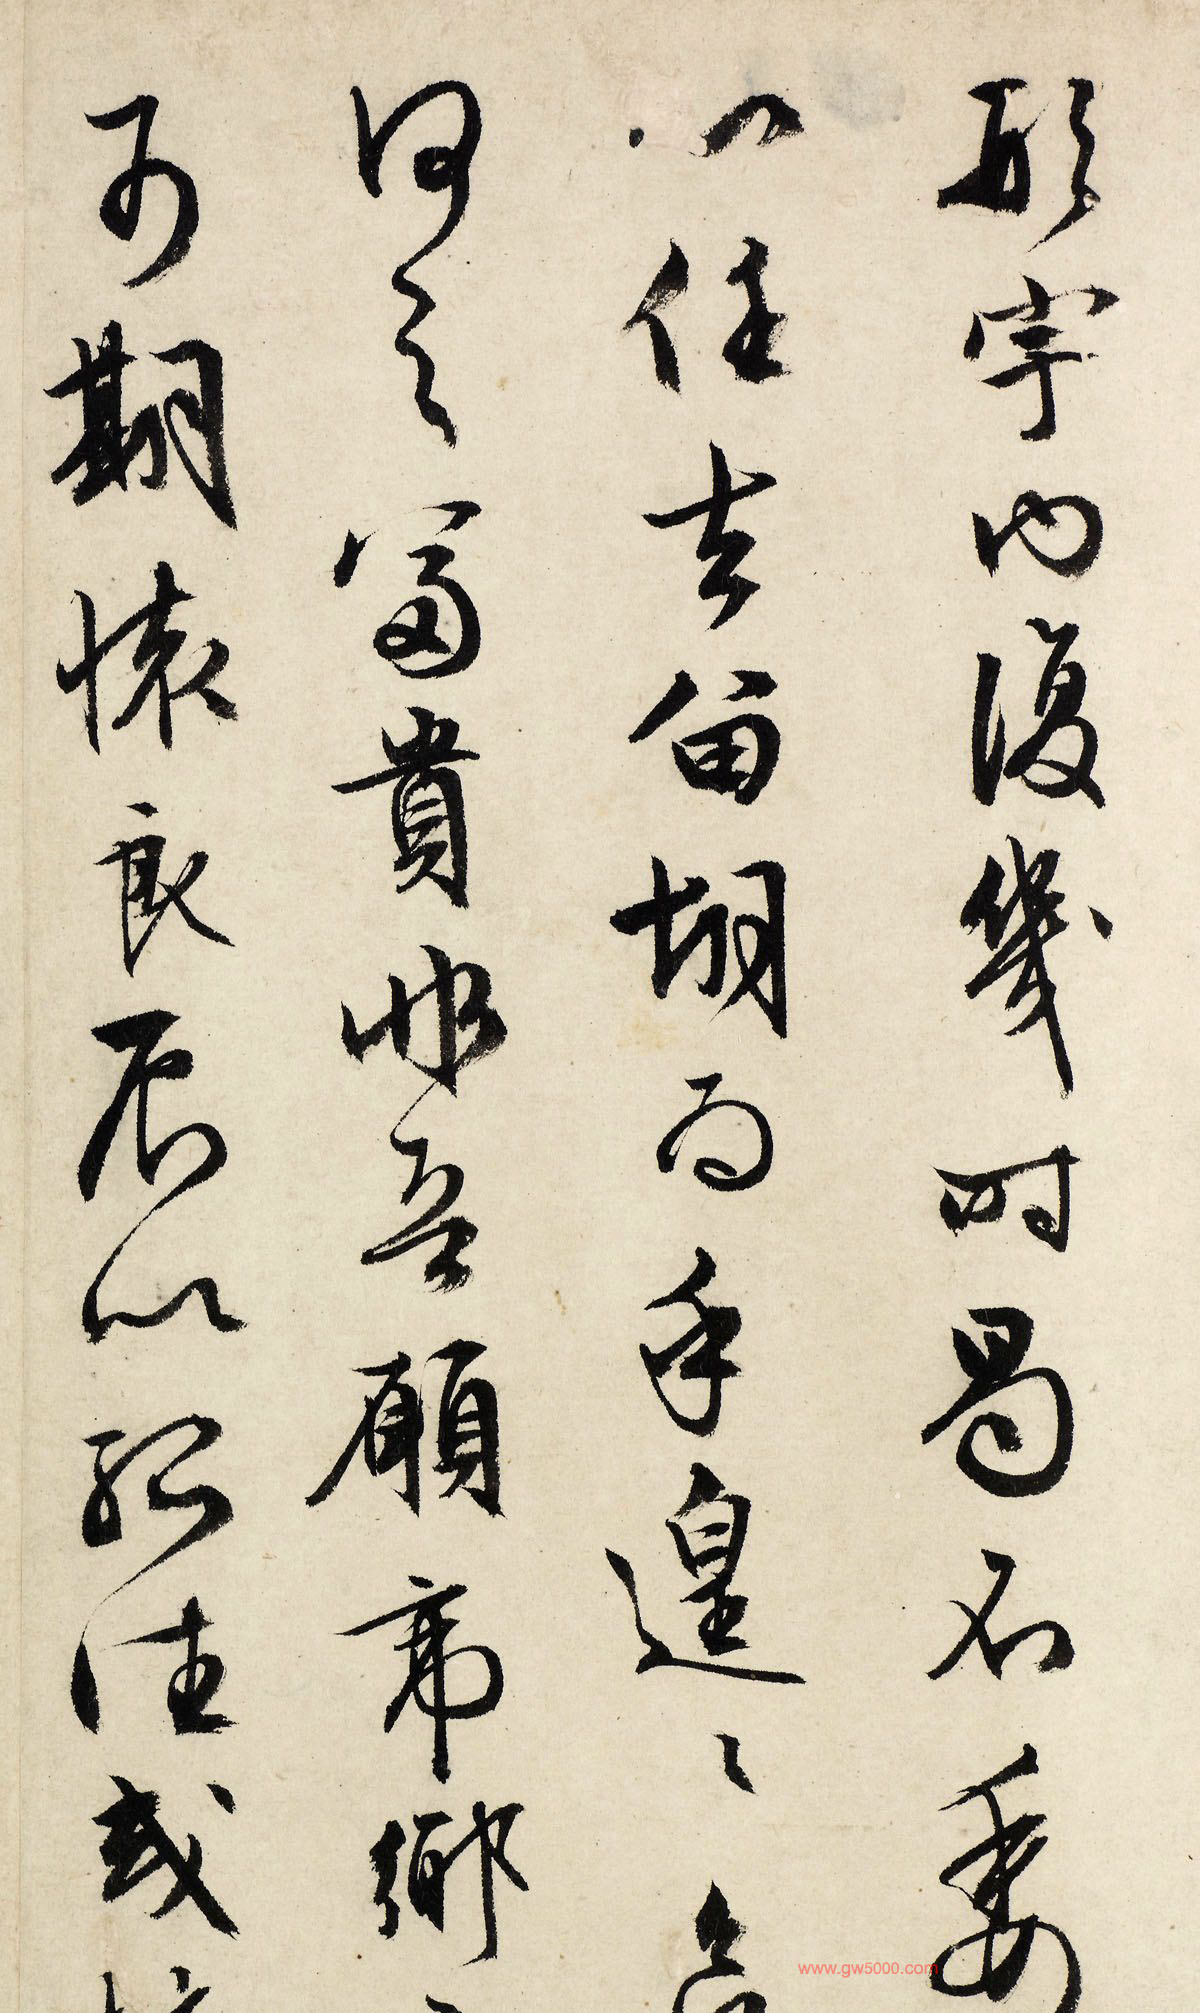 形宇内復幾時曷不委
心任去留胡為乎遑〻
何之富貴非吾願帝鄉
可期懷良辰以孤往或
www.gw5000.com